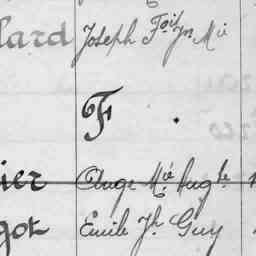 lard Joseph F.ois J.n M.ie
F .
ier Ange M.ie Aug.te
got Emile J.h Guy